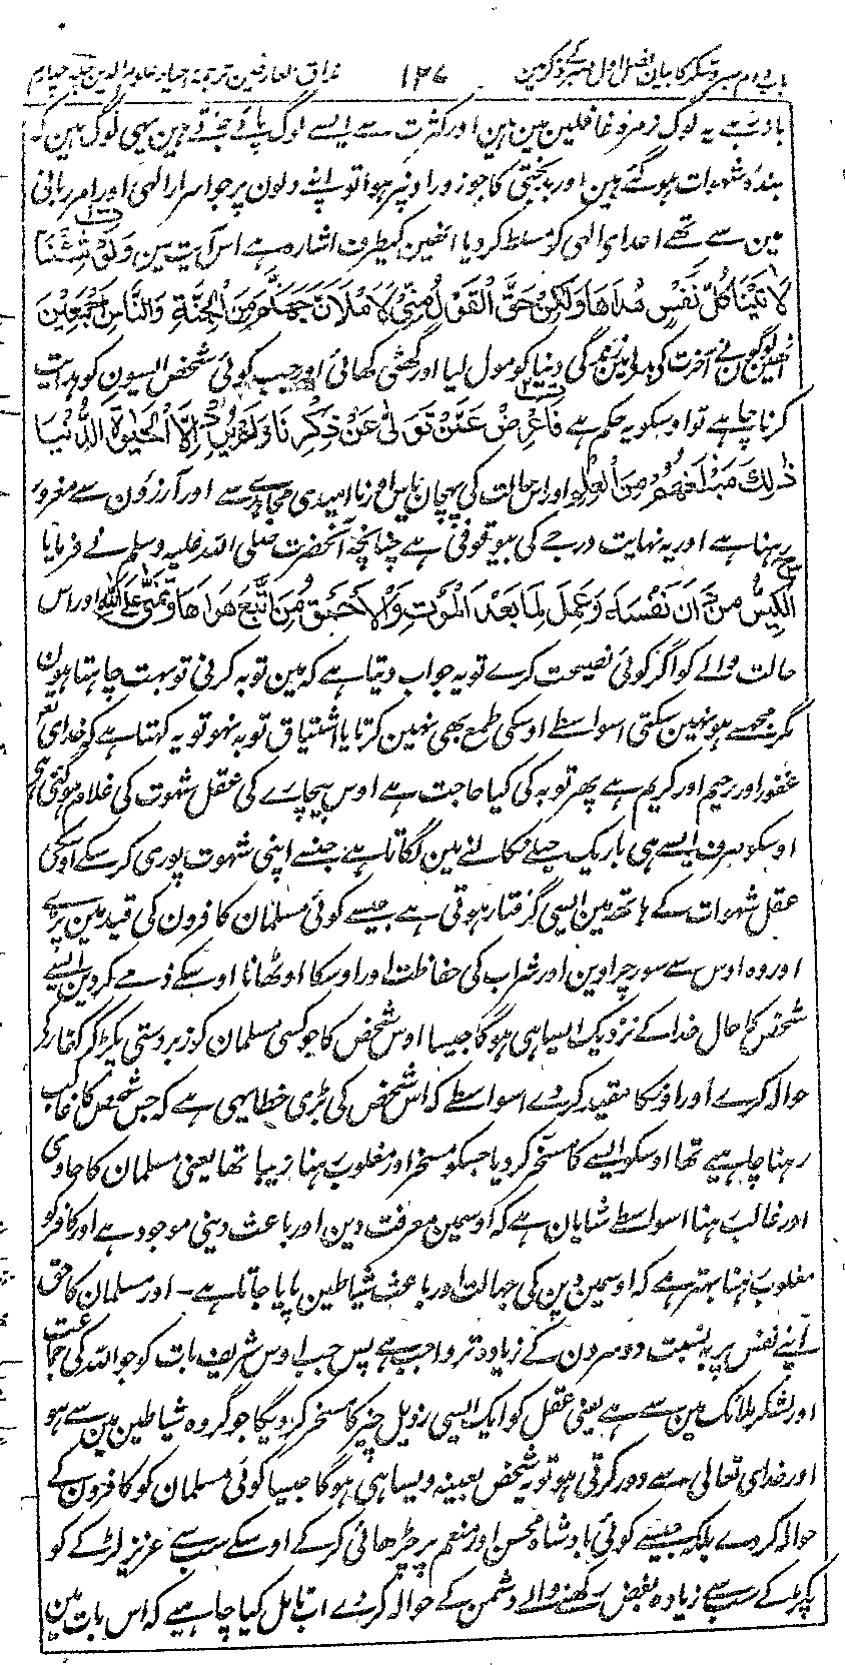 باب دوم صبر و شکر کا بیان فصل اول صبر کے ذکر مین ۱۲۷ مذاق العارفین ترجمہ احیاء علوم الدین جلد چہارم
یہ لوگ زمرہ غافلین مین ہین اور کثرت سے ایسے لوگ پائے جاتے ہین یہی لوگ ہین کہ
بندۂ شہوات ہو گئے ہین اور بدبختی کا جو زور اونپر ہوا تو اپنے دلون پر جو اسرار الہی اور امر ربانی
مین سے تھے اعدای الہی کو مسلط کر دیا انھین کیطرف اشارہ ہے اس آیت مین وَلَوْ شِئْنَا
لَاٰتَيْنَا كُلَّ نَفْسٍ هُدَاهَا وَلٰكِنْ حَقَّ الْقَوْلُ مِنِّيْ لَاَمْلَاَنَّ جَهَنَّمَ مِنَ الْجِنَّةِ وَالنَّاسِ اَجْمَعِيْنَ
انھین لوگون نے آخرت کی بدلے زندگی دنیا کو مول لیا اور گھٹی کھائی اور جب کوئی شخص ایسون کو ہدایت
کرنا چاہے تو اوسکو یہ حکم ہے فَاَعْرِضْ عَمَّنْ تَوَلّٰى عَنْ ذِكْرِنَا وَلَمْ يُرِدْ اِلَّا الْحَيٰوةَ الدُّنْيَا
ذٰلِكَ مَبْلَغُهُمْ مِنَ الْعِلْمِ اور اس حالت کی پہچان یاس اور نا امیدی مجاہدے سے اور آرزؤن سے مغرور
رہنا ہے اور یہ نہایت درجے کی بیوقوفی ہے چنانچہ آنحضرت صلی اللہ علیہ وسلم نے فرمایا
اَلْكَيِّسُ مَنْ دَانَ نَفْسَهٗ وَعَمِلَ لِمَا بَعْدَ الْمَوْتِ وَالْاَحْمَقُ مَنْ اَتْبَعَ هَوَاهَا وَتَمَنّٰى عَلَى اللّٰهِ اور اس
حالت والے کو اگر کوئی نصیحت کرے تو یہ جواب دیتا ہے کہ مین توبہ کرنی تو بہت چاہتا ہون
مگر مجھسے ہو نہین سکتی اسواسطے اوسکی طمع بھی نہین کرتا یا اشتیاق توبہ نہو تو یہ کہتا ہے کہ خدای تعالی
غفور اور رحیم اور کریم ہے پھر توبہ کی کیا حاجت ہے اوس بیچارے کی عقل شہوت کی غلام ہو گئی ہے
اوسکو صرف ایسے ہی باریک حیلے نکالنے مین لگاتا ہے جنسے اپنی شہوت پوری کر سکے اوسکی
عقل شہوات کے ہاتھ مین ایسی گرفتار ہوتی ہے جیسے کوئی مسلمان کافرون کی قید مین پڑے
اور وہ اوس سے سور چراوین اور شراب کی حفاظت اور اوسکا اوٹھانا اوسکے ذمے کر دین ایسے
شخص کا حال خدا کے نزدیک ایسا ہی ہوگا جیسا اوس شخص کا جو کسی مسلمان کو زبردستی پکڑ کر کفار کے
حوالہ کرے اور اونکا مقید کر دے اسواسطے کہ اس شخص کی بڑی خطا یہی ہے کہ جس شخص کا غالب
رہنا چاہیے تھا اوسکو ایسے کا مسخر کر دیا جسکو مسخر اور مغلوب رہنا زیبا تھا یعنی مسلمان کا حاوی
اور غالب رہنا اسواسطے شایان ہے کہ اوسمین معرفت دین اور باعث دینی موجود ہے اور کافر کو
مغلوب رہنا بہتر ہے کہ اوسمین دین کی جہالت اور باعث شیاطین پایا جاتا ہے ۔ اور مسلمان کا حق
اپنے نفس پر بہ نسبت دوسرون کے زیادہ تر واجب ہے پس جب اوس شریف بات کو جو اللہ کی جماعت
اور لشکر ملائک مین سے ہے یعنی عقل کو ایک ایسی رذیل چیز کا مسخر کر دیگا جو گروہ شیاطین مین سے ہو
اور خدای تعالی سے دور کرتی ہو تو یہ شخص بعینہ ویسا ہی ہوگا جیسا کوئی مسلمان کو کافرون کے
حوالہ کر دے بلکہ جیسے کوئی بادشاہ محسن اور منعم پر چڑھائی کر کے اوسکے سب سے عزیز لڑکے کو
پکڑ کے سب سے زیادہ بغض رکھنے والے دشمن کے حوالہ کر دے اب تامل کیا چاہیے کہ اس بات مین